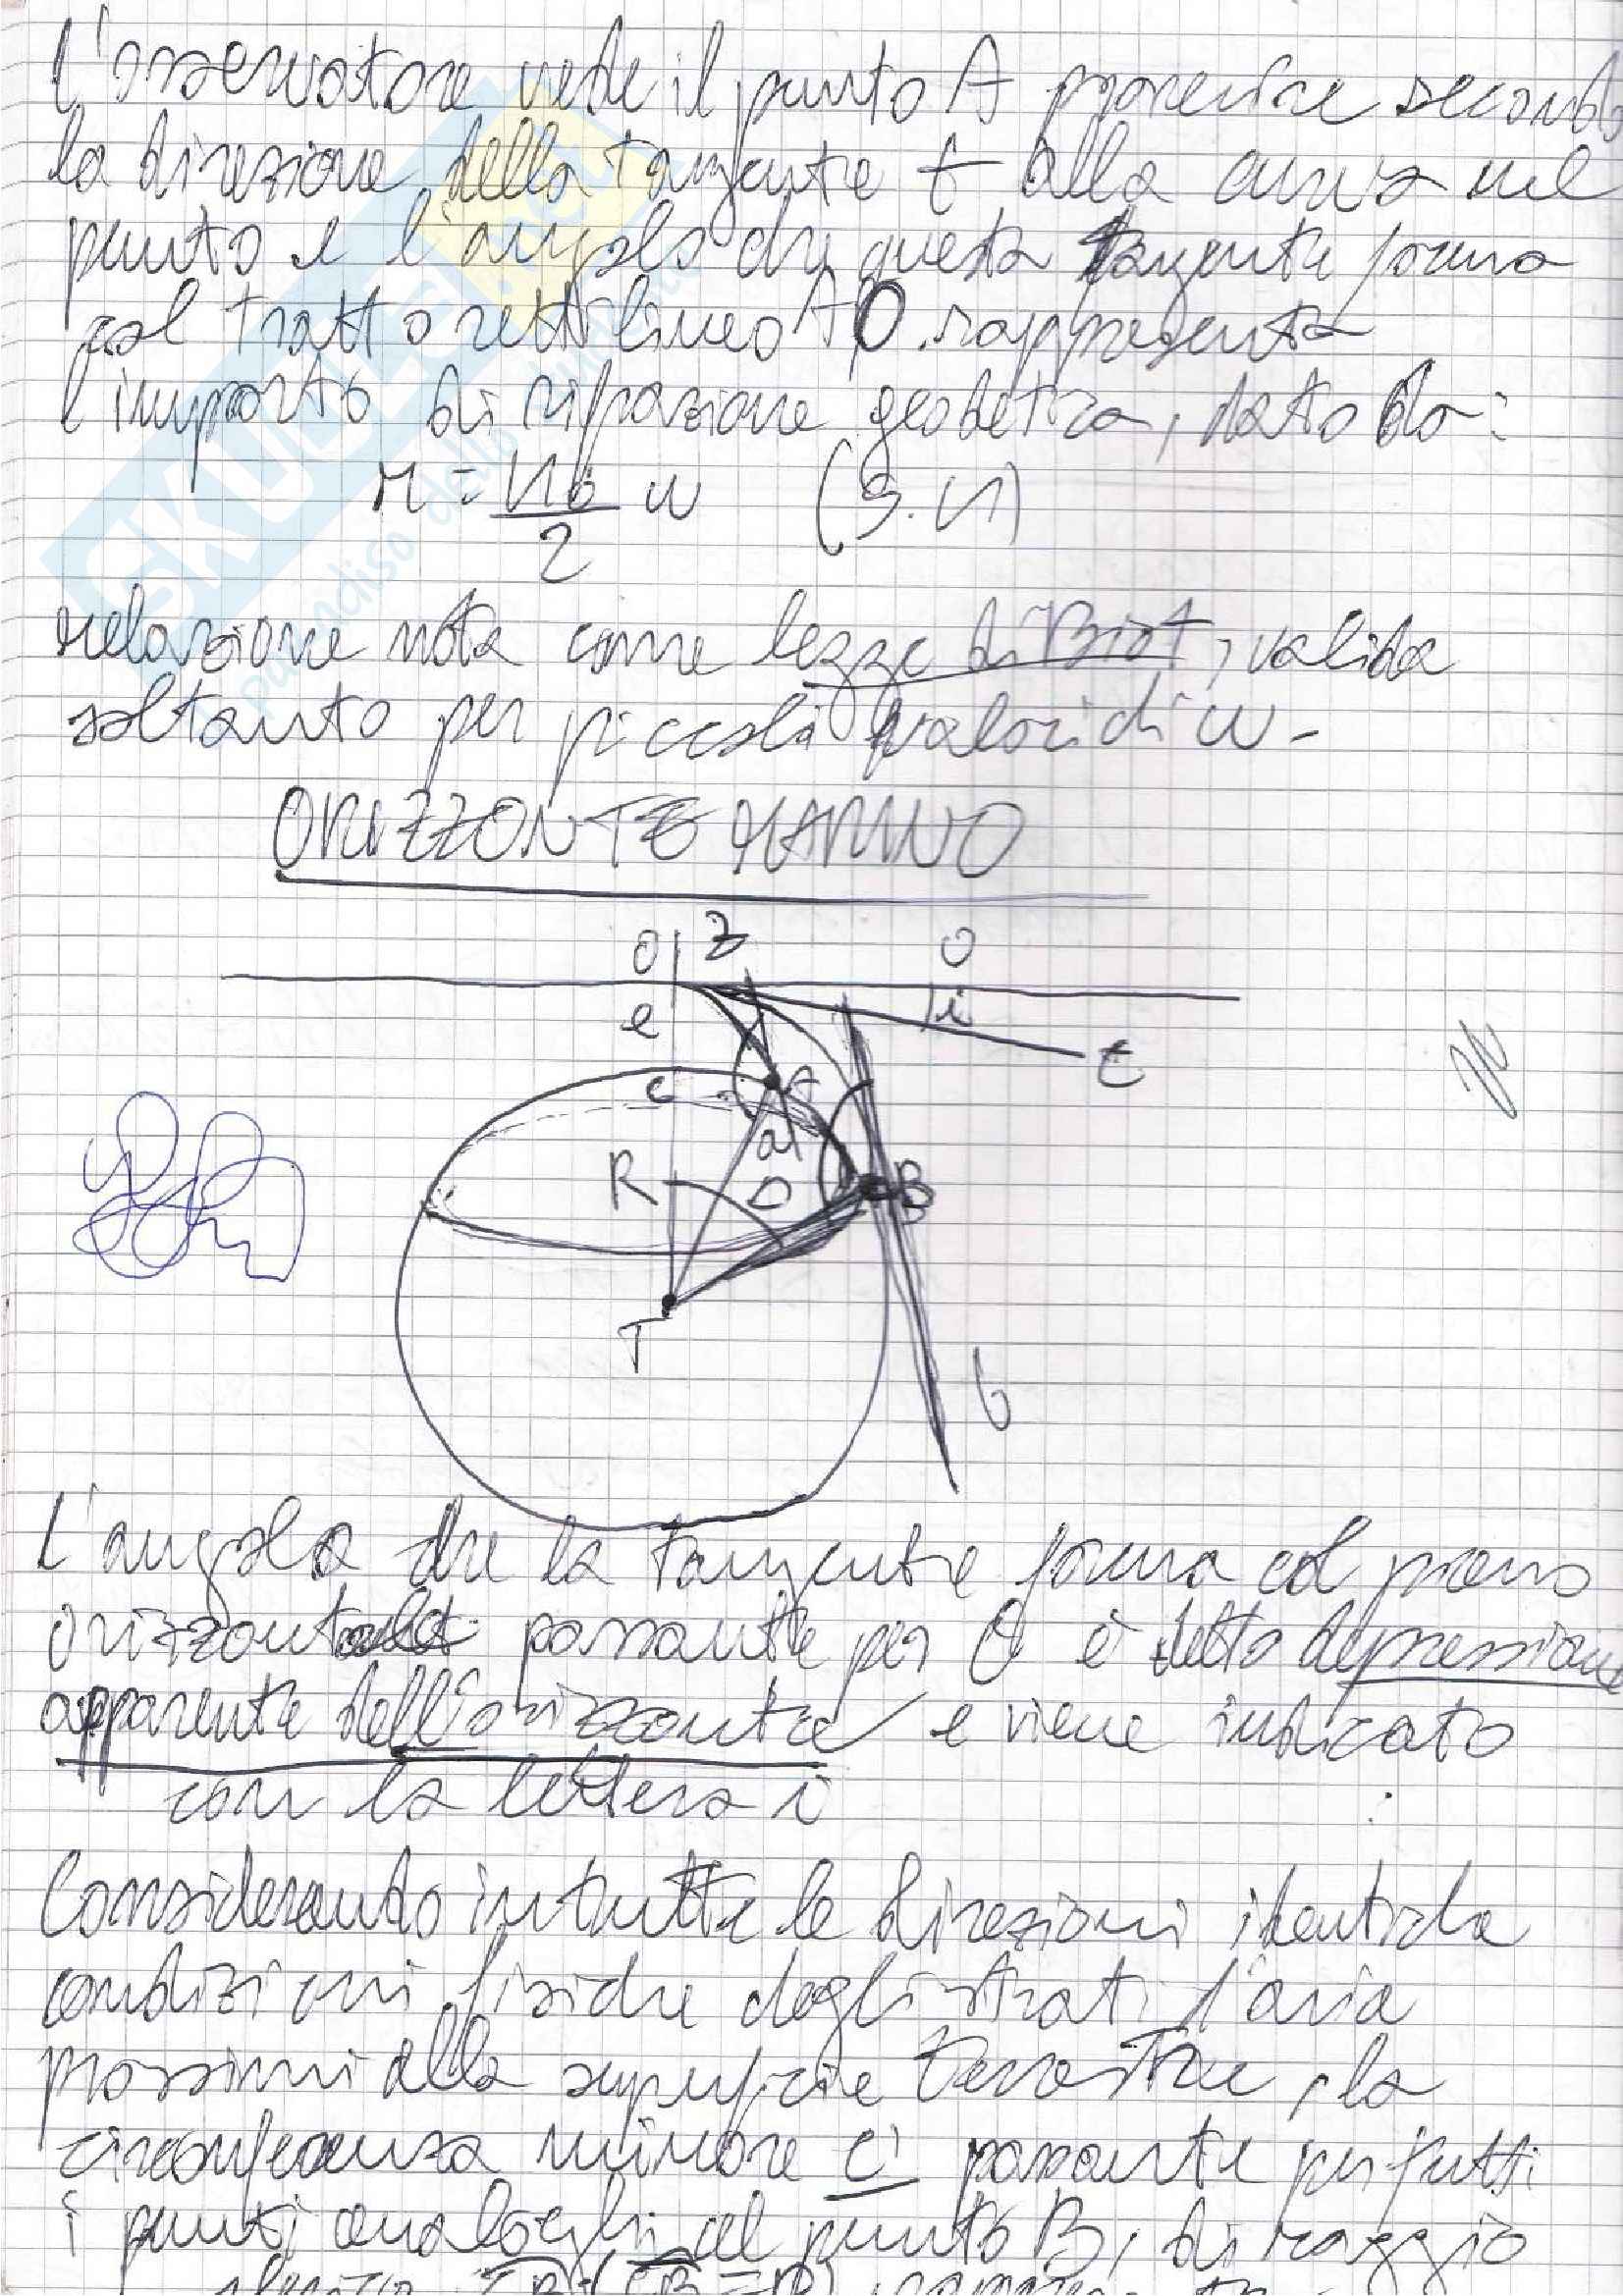 L'osservatore vede il punto A provenire secondo
la direzione della tangente t alla curva nel
punto e l'angolo che questa tangente forma
col tratto rettilineo AO rappresenta
l'importo di rifrazione geodetica, dato da:
r = n₀/2 w (3.1)
relazione nota come legge di Biot, valida
soltanto per piccoli valori di w -
ORIZZONTE MARINO
O Z O
e i
t
c A
a
R D B
T
b
L'angolo che la tangente forma col piano
orizzontale passante per O è detto depressione
apparente dell'orizzonte e viene indicato
con la lettera i
Considerando in tutte le direzioni identiche
condizioni fisiche degli strati d'aria
prossimi alla superficie terrestre, la
circonferenza minore c' passante per tutti
i punti analoghi al punto B, di raggio
SKUOLA.net
paradiso dello studente